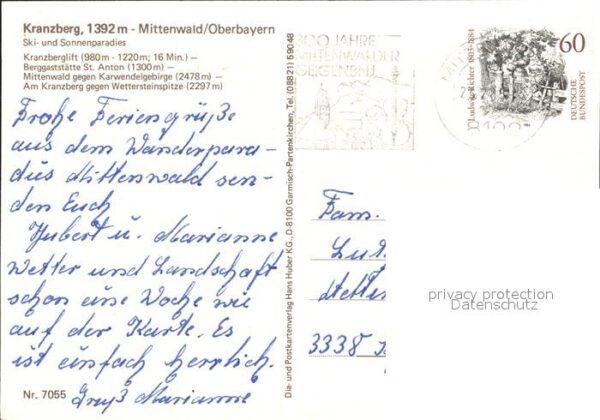 Kranzberg, 1392 m - Mittenwald/Oberbayern
Ski- und Sonnenparadies
Kranzberglift (980m - 1220m; 16 Min.) –
Berggaststätte St. Anton (1300m) –
Mittenwald gegen Karwendelgebirge (2478m) –
Am Kranzberg gegen Wettersteinspitze (2297m)
Frohe Feriengrüße
aus dem Wanderpara-
dies Mittenwald sen-
den Euch
Hubert u. Marianne
Wetter und Landschaft
schon eine Woche wie
auf der Karte. Es
ist einfach herrlich.
Gruß Marianne
Nr. 7055
Dia- und Postkartenverlag Hans Huber KG., D-8100 Garmisch-Partenkirchen, Tel. (08821) 59048
300 JAHRE
MITTENWALDER
GEIGENBAU
Ludwig Richter 1803-1884
60
DEUTSCHE
BUNDESPOST
8102
Fam.
3338
privacy protection
Datenschutz